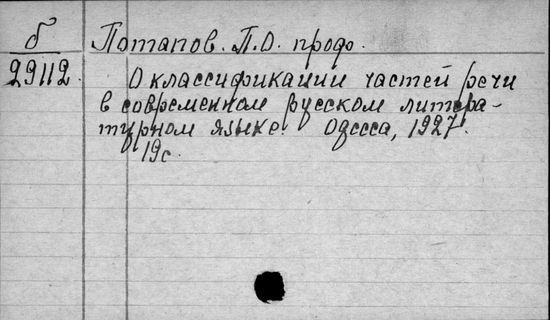 б
29112.
Потапов. П.О. проф.
О классификации частей речи
в современном русском литера-
турном языке. Одесса, 1927.
19с.